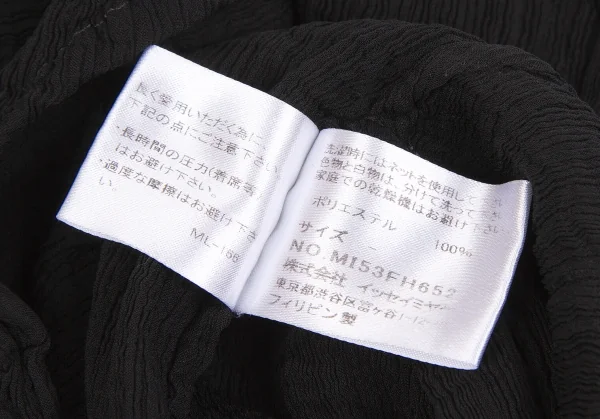 長く愛用いただく為に、
下記の点にご注意下さい。
・長時間の圧力(着席等)
はお避け下さい。
・過度な摩擦はお避け下さ
い。
ML-166
洗濯時にはネットを使用して下さい
色物と白物は、分けて洗って下さい
家庭での乾燥機はお避け下さい
ポリエステル 100%
サイズ -
NO.MI53FH652
株式会社 イッセイミヤケ
東京都渋谷区富ヶ谷1-12-
フィリピン製